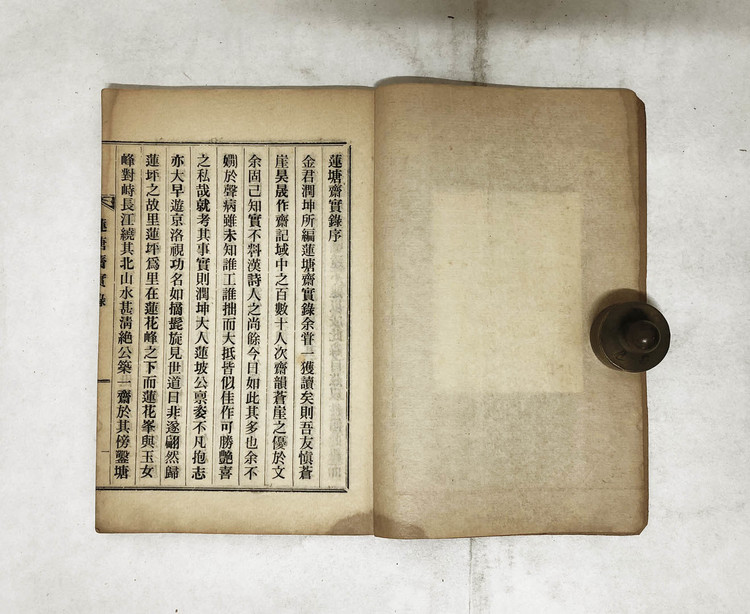 蓮塘齋實錄序
金君潤坤所編蓮塘齋實錄余嘗一獲讀矣則吾友愼蒼
崖昊晟作齋記域中之百數十人次齋韻蒼崖之優於文
余固已知實不料漢詩人之尚餘今日如此其多也余不
嫺於聲病雖未知誰工誰拙而大抵皆似佳作可勝艶喜
之私哉就考其事實則潤坤大人蓮坡公禀姿不凡抱志
亦大早遊京洛視功名如摘髭旋見世道日非遂翩然歸
蓮坪之故里蓮坪爲里在蓮花峰之下而蓮花峯與玉女
峰對峙長江繞其北山水甚淸絶公築一齋於其傍鑿塘
蓮塘齋實錄
一